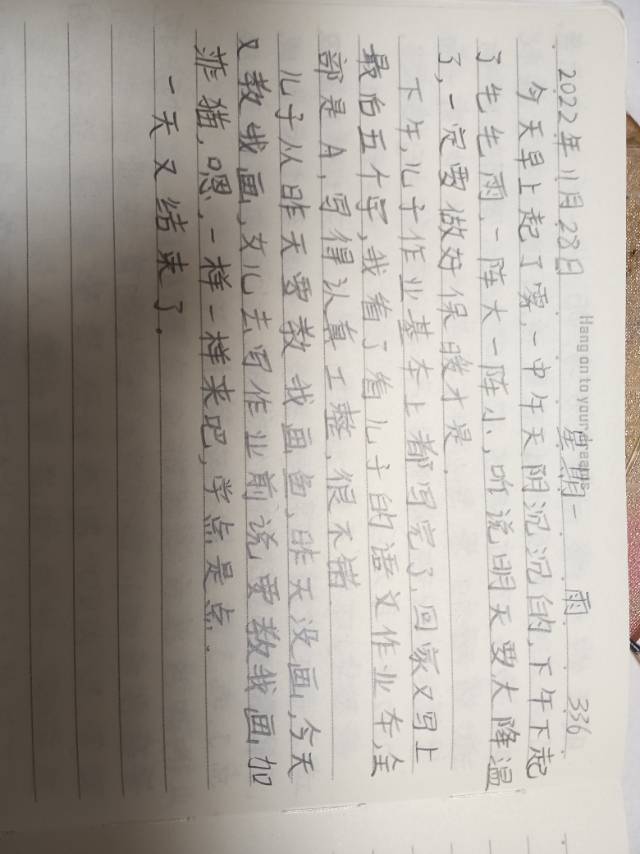 Hang on to your dreams
2022年11月28日 星期一 雨 336
今天早上起了雾,一中午天阴沉沉的,下午下起
了毛毛雨,一阵大一阵小,听说明天要大降温
了,一定要做好保暖才是.
下午,儿子作业基本上都写完了,回家又写上
最后五个字,我看了看儿子的语文作业本,全
部是A,写得认真工整,很不错
儿子从昨天要教我画画,昨天没画,今天
又教我画,女儿去写作业前说要教我画加
菲猫,嗯,一样一样来吧,学点是点.
一天又结束了.